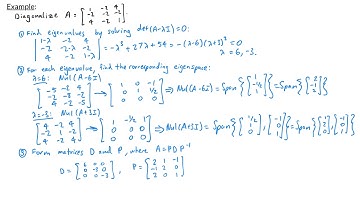 Example:
Diagonalize A = [1 -2 4; -2 -2 -2; 4 -2 1].
① Find eigenvalues by solving det(A-λI)=0:
|1-λ -2 4; -2 -2-λ -2; 4 -2 1-λ| = -λ³+27λ+54 = -(λ-6)(λ+3)² = 0
λ = 6, -3.
② For each eigenvalue, find the corresponding eigenspace:
λ=6: Nul(A-6I)
[-5 -2 4; -2 -8 -2; 4 -2 -5] → [1 0 -1; 0 1 1/2; 0 0 0] ⇒ Nul(A-6I) = Span{[1; -1/2; 1]} = Span{[2; -1; 2]}
λ=-3: Nul(A+3I)
[4 -2 4; -2 1 -2; 4 -2 4] → [1 -1/2 1; 0 0 0; 0 0 0] ⇒ Nul(A+3I) = Span{[1/2; 1; 0], [-1; 0; 1]} = Span{[1; 2; 0], [-1; 0; 1]}
③ Form matrices D and P, where A = PDP⁻¹
D = [6 0 0; 0 -3 0; 0 0 -3], P = [2 1 -1; -1 2 0; 2 0 1]